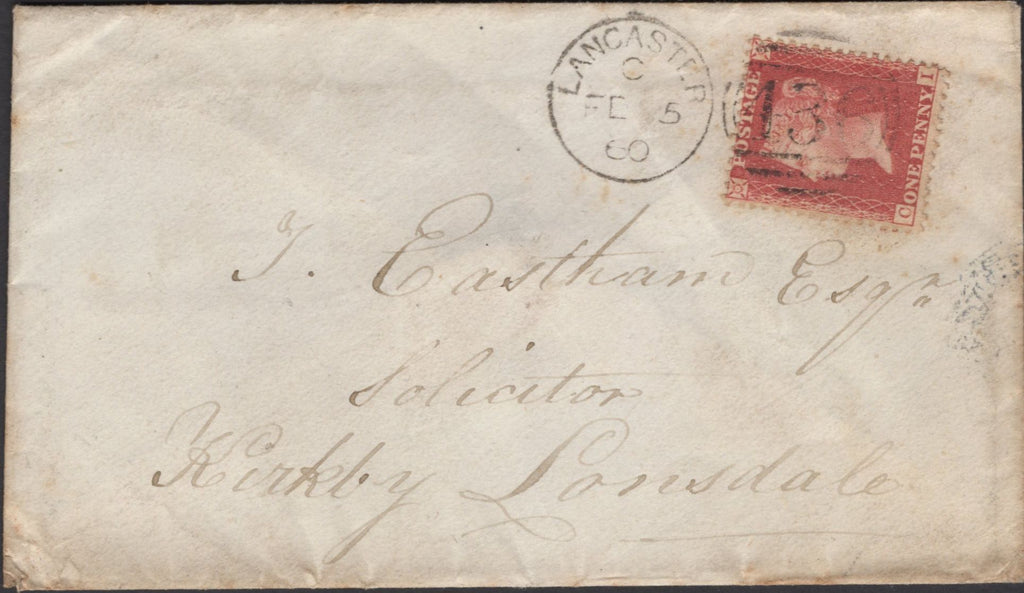 LANCASTER
C
FE 5
60
POSTAGE
ONE PENNY
C I
J. Eastham Esqr
Solicitor
Kirkby Lonsdale